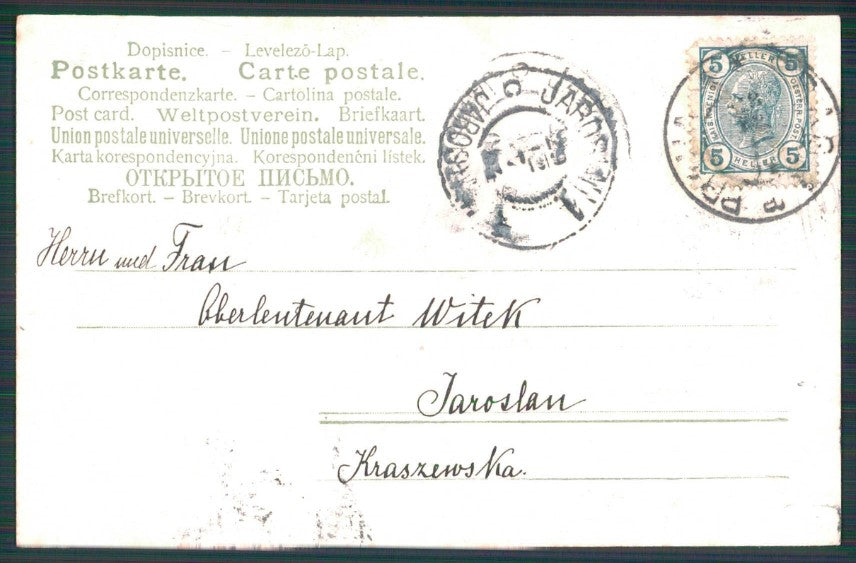 Dopisnice. – Levelező-Lap.
Postkarte. Carte postale.
Correspondenzkarte. – Cartolina postale.
Post card. Weltpostverein. Briefkaart.
Union postale universelle. Unione postale universale.
Karta korespondencyjna. Korespondenční lístek.
ОТКРЫТОЕ ПИСЬМО.
Brefkort. – Brevkort. – Tarjeta postal.
JAROSLAU 1
5 HELLER 5
5 HELLER 5
Herrn und Frau
Oberleutenant Witek
Jaroslau
Kraszewska.